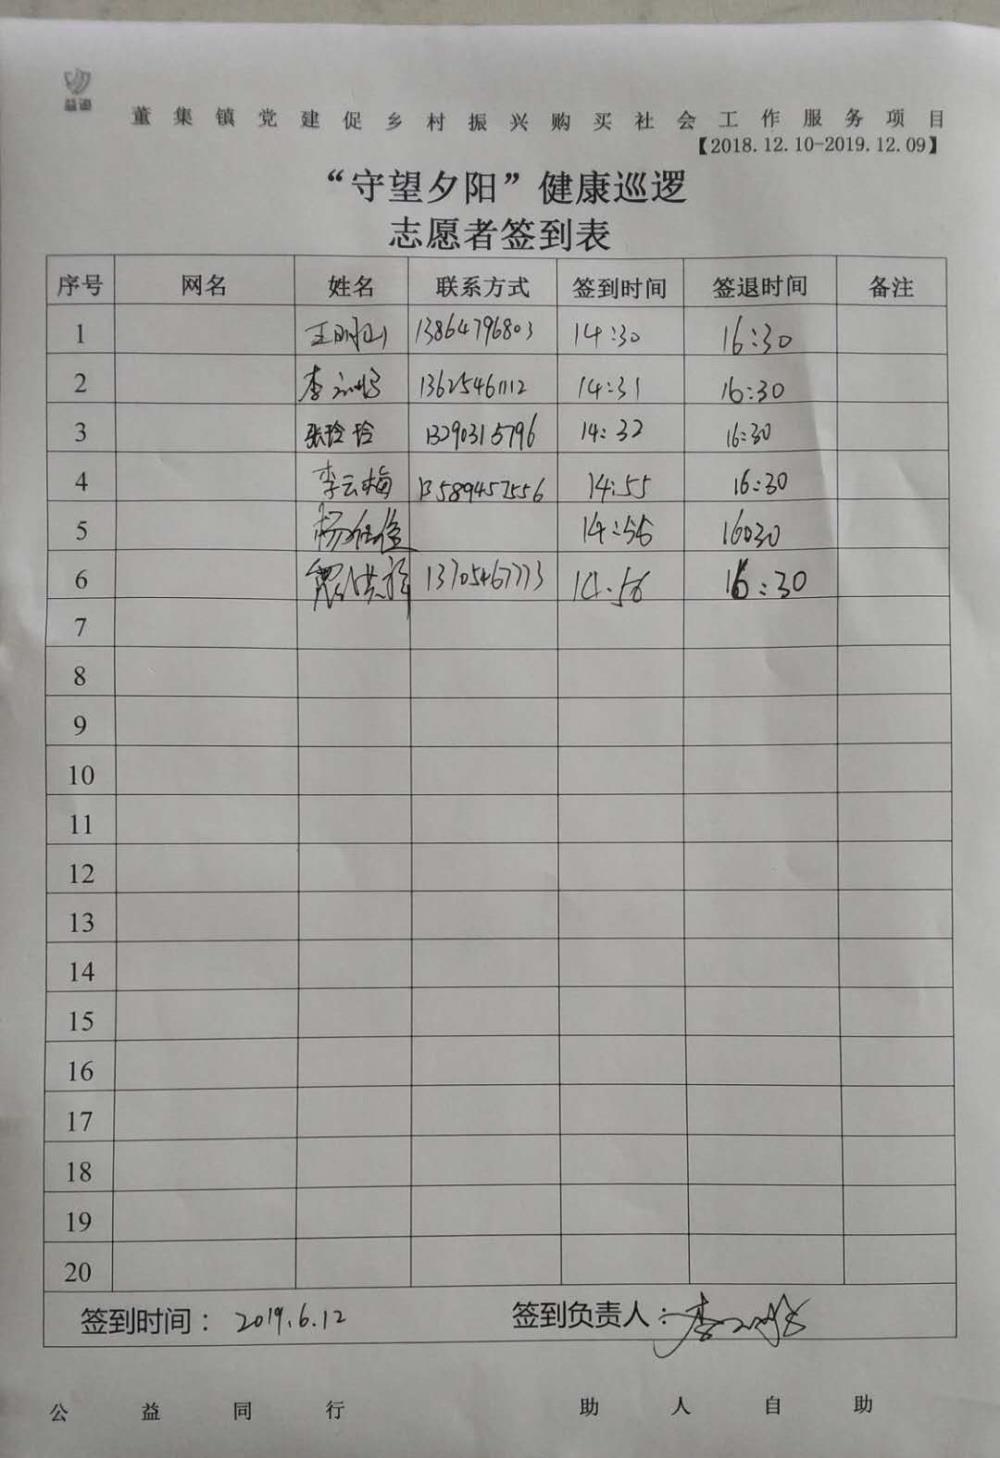 益迪
董集镇党建促乡村振兴购买社会工作服务项目
【2018.12.10-2019.12.09】
“守望夕阳”健康巡逻
志愿者签到表
序号 网名 姓名 联系方式 签到时间 签退时间 备注
1 13864796803 14:30 16:30
2 李 13625461112 14:31 16:30
3 张玲玲 13290315796 14:32 16:30
4 李云梅 13589457556 14:55 16:30
5 杨 14:56 16030
6 13705467773 14.56 16:30
7
8
9
10
11
12
13
14
15
16
17
18
19
20
签到时间：2019.6.12 签到负责人：李
公益同行 助人自助